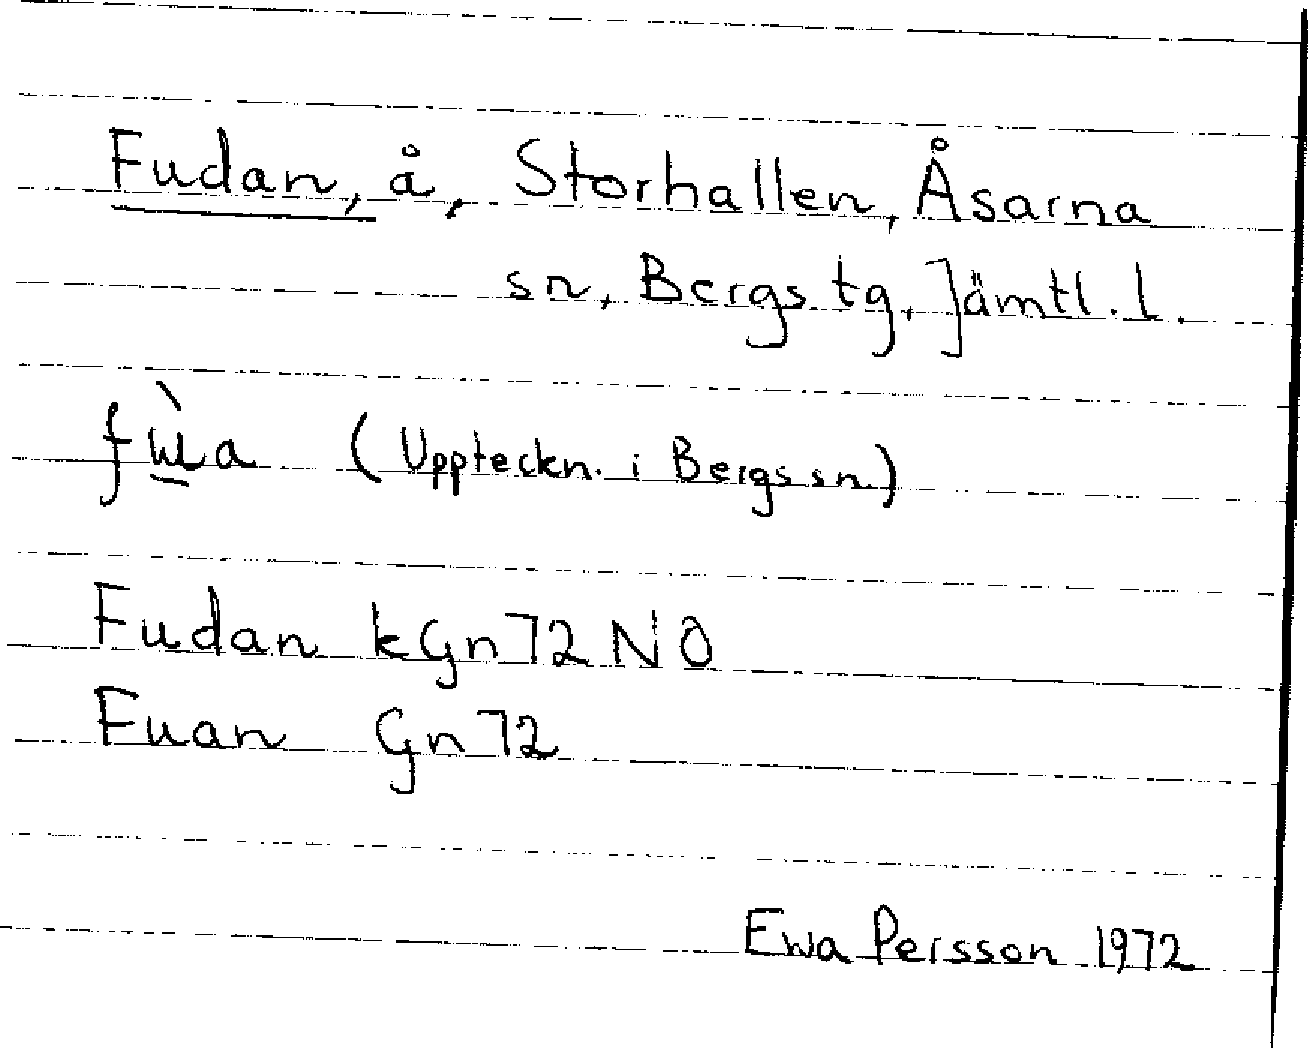 Fudan, å, Storhallen, Åsarna
sn, Bergs tg, Jämtl. l.
(Uppteckn. i Bergs sn)
Fudan kGn 72 NO
Fuan Gn 72
Ewa Persson 1972